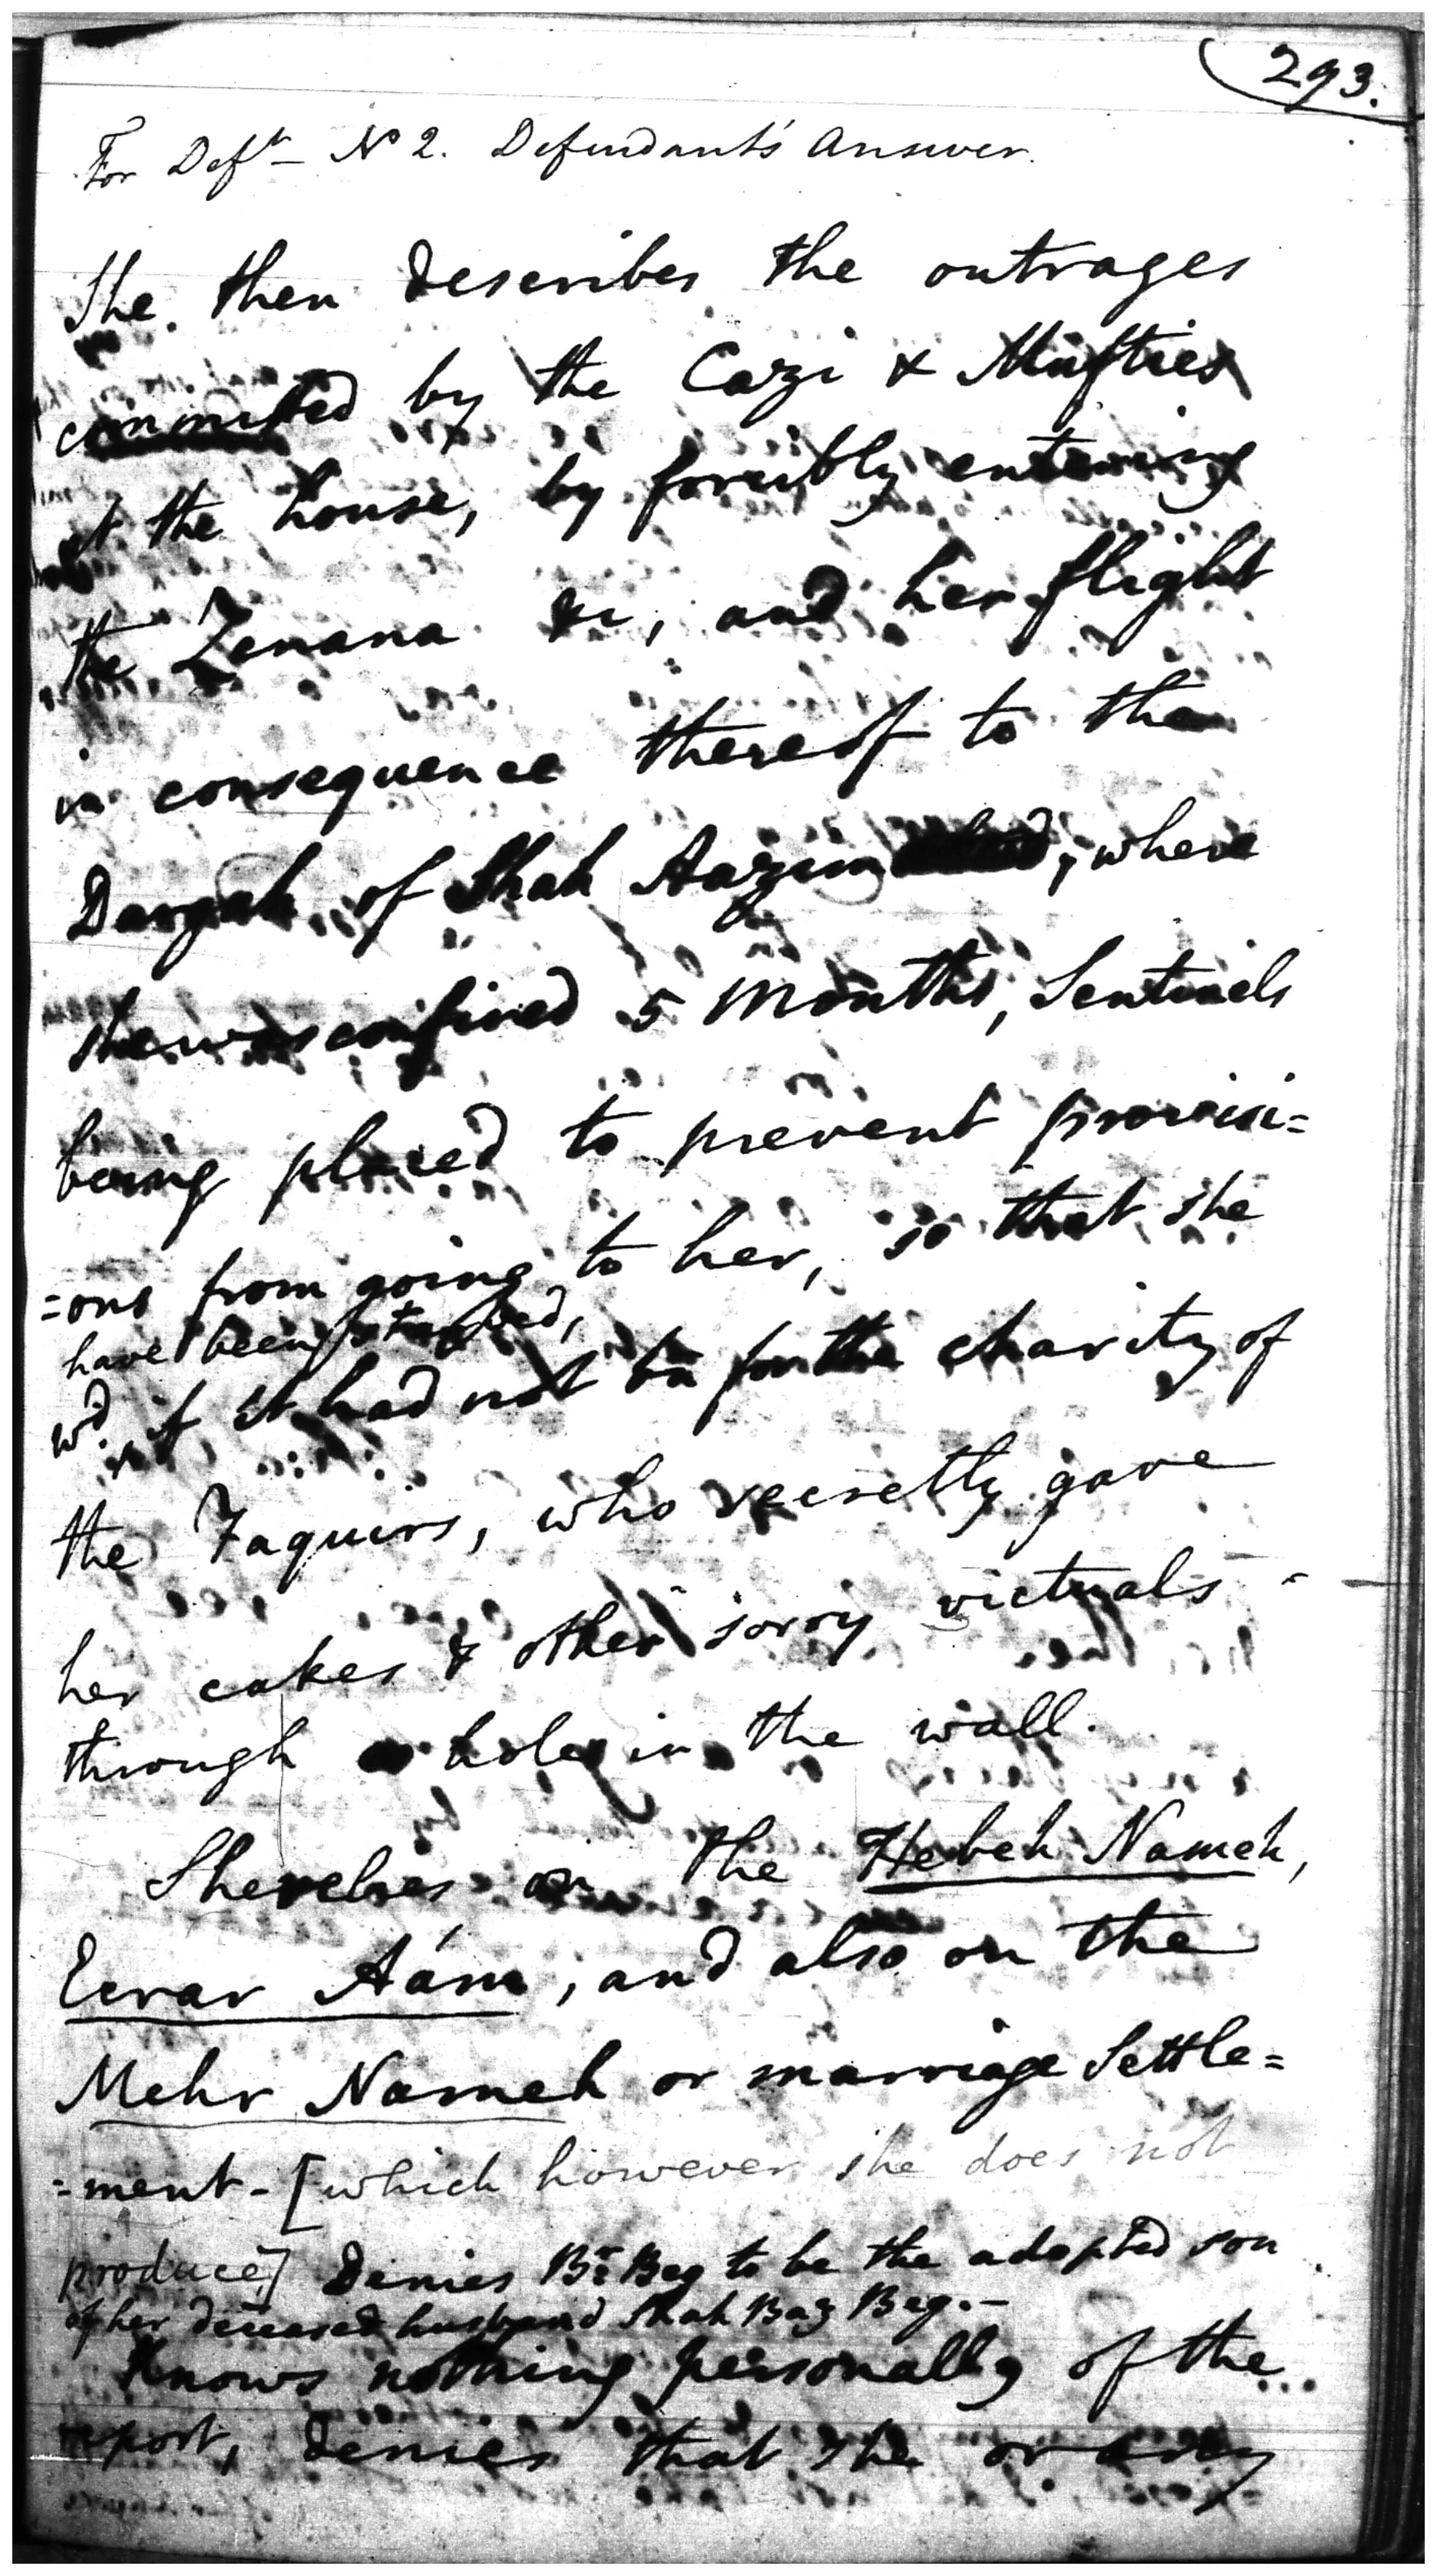 293.
For Deft. No 2. Defendant's Answer.
She then describes the outrages
committed by the Cazi & Mufties
at the house, by forcibly entering
the Zenana &c, and her flight
in consequence thereof to the
Dargah of Shah Aazim, where
she was confined 5 months, Sentinels
being placed to prevent provisi=
=ons from going to her, so that she
have been starved,
wd. if it had not bn for the charity of
the Faquirs, who secretly gave
her cakes & other sorry victuals -
through a hole in the wall.
She relies on the Hebeh Nameh,
Ecrar Aám, and also on the
Mehr Nameh or marriage Settle=
=ment - [which however she does not
produce] Denies Br. Beg to be the adopted son
of her deceased husband Shah Baz Beg. -
Knows nothing personally of the
report, denies that she or any